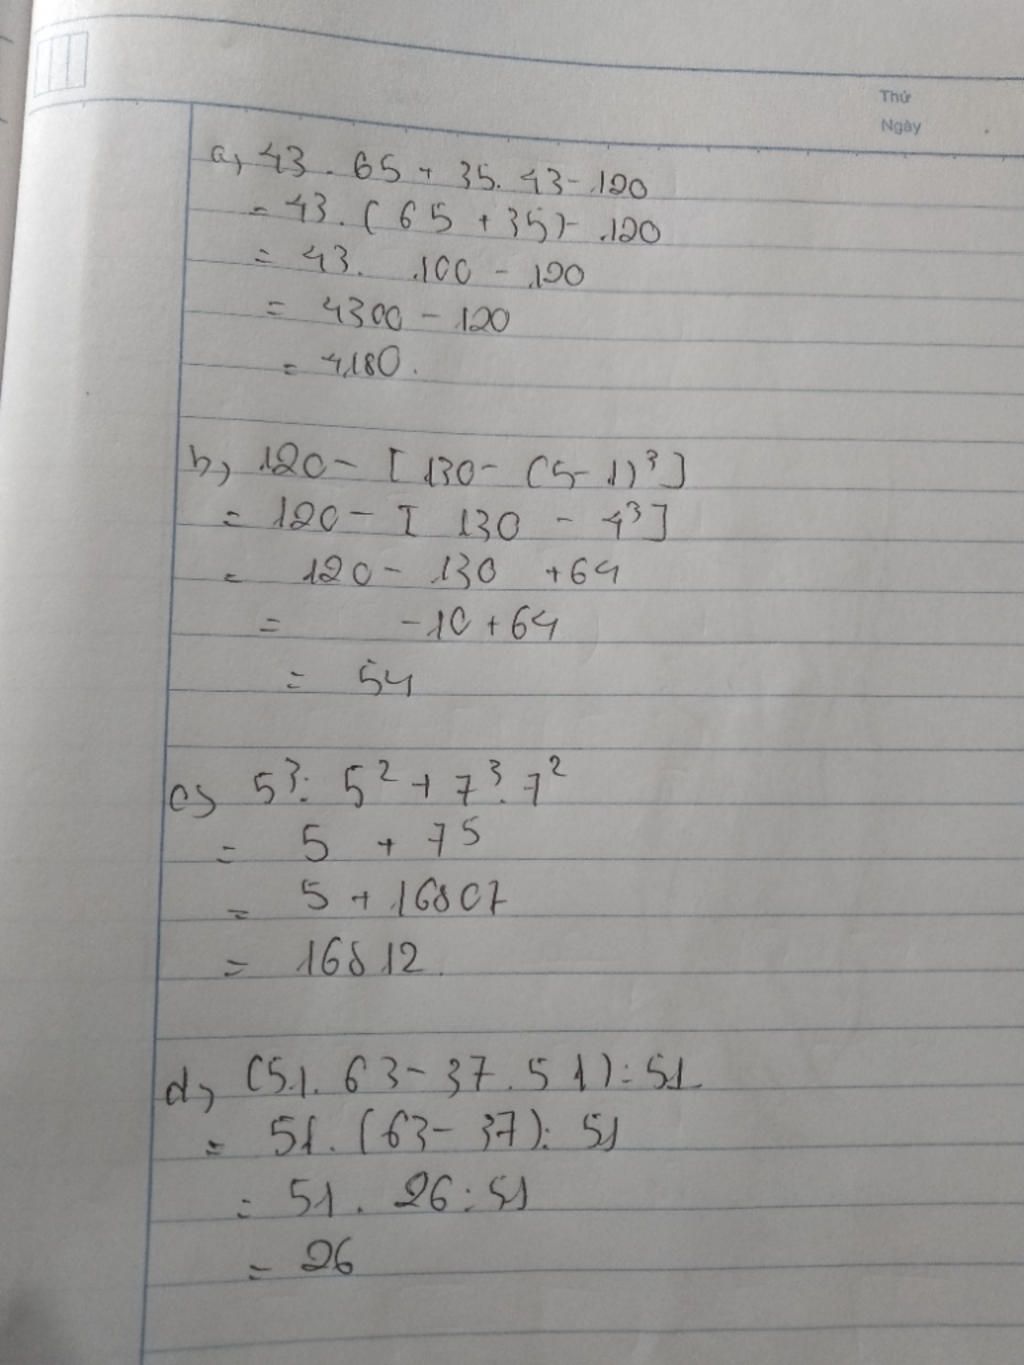 Thứ
Ngày
a, 43 . 65 + 35. 43 - 120
= 43. ( 65 + 35) - 120
= 43. 100 - 120
= 4300 - 120
= 4180.
b, 120 - [ 130 - (5 - 1)³ ]
= 120 - [ 130 - 4³ ]
= 120 - 130 + 64
= -10 + 64
= 54
c, 5³ : 5² + 7³ . 7²
= 5 + 7⁵
= 5 + 16807
= 16812.
d, (51. 63 - 37 . 51) : 51
= 51. (63 - 37) : 51
= 51 . 26 : 51
= 26